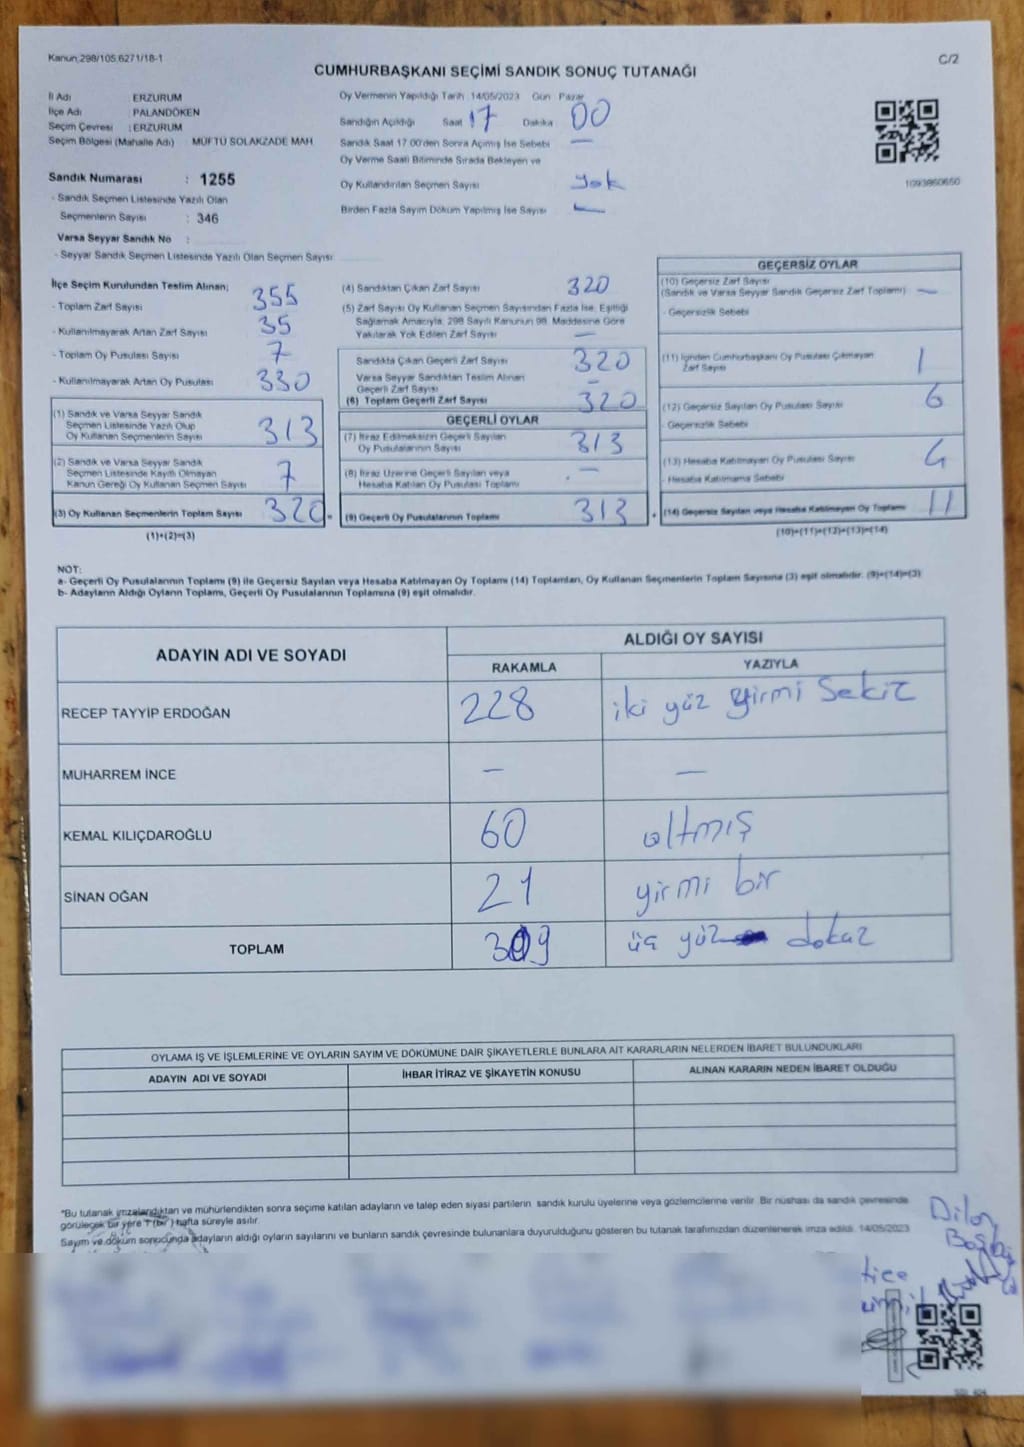 Kanun:298/105 6271/18-1
C/2
CUMHURBAŞKANI SEÇİMİ SANDIK SONUÇ TUTANAĞI
İl Adı ERZURUM
İlçe Adı PALANDÖKEN
Seçim Çevresi : ERZURUM
Seçim Bölgesi (Mahalle Adı) MÜFTÜ SOLAKZADE MAH
Sandık Numarası : 1255
- Sandık Seçmen Listesinde Yazılı Olan
Seçmenlerin Sayısı : 346
Varsa Seyyar Sandık No :
- Seyyar Sandık Seçmen Listesinde Yazılı Olan Seçmen Sayısı
Oy Vermenin Yapıldığı Tarih 14/05/2023 Gün Pazar
Sandığın Açıldığı Saat 17 Dakika 00
Sandık Saat 17.00'den Sonra Açılmış İse Sebebi —
Oy Verme Saati Bitiminde Sırada Bekleyen ve
Oy Kullandırılan Seçmen Sayısı yok
Birden Fazla Sayım Döküm Yapılmış İse Sayısı —
1093860650
İlçe Seçim Kurulundan Teslim Alınan;
- Toplam Zarf Sayısı 355
- Kullanılmayarak Artan Zarf Sayısı 35
- Toplam Oy Pusulası Sayısı 7
- Kullanılmayarak Artan Oy Pusulası 330
(1) Sandık ve Varsa Seyyar Sandık
Seçmen Listesinde Yazılı Olup
Oy Kullanan Seçmenlerin Sayısı 313
(2) Sandık ve Varsa Seyyar Sandık
Seçmen Listesinde Kayıtlı Olmayan
Kanun Gereği Oy Kullanan Seçmen Sayısı 7
(3) Oy Kullanan Seçmenlerin Toplam Sayısı 320
(1)+(2)=(3)
(4) Sandıktan Çıkan Zarf Sayısı 320
(5) Zarf Sayısı Oy Kullanan Seçmen Sayısından Fazla İse, Eşitliği
Sağlamak Amacıyla, 298 Sayılı Kanunun 98. Maddesine Göre
Yakılarak Yok Edilen Zarf Sayısı —
Sandıkta Çıkan Geçerli Zarf Sayısı 320
Varsa Seyyar Sandıktan Teslim Alınan
Geçerli Zarf Sayısı —
(6) Toplam Geçerli Zarf Sayısı 320
GEÇERLİ OYLAR
(7) İtiraz Edilmeksizin Geçerli Sayılan
Oy Pusulalarının Sayısı 313
(8) İtiraz Üzerine Geçerli Sayılan veya
Hesaba Katılan Oy Pusulası Toplamı —
= (9) Geçerli Oy Pusulalarının Toplamı 313 +
GEÇERSİZ OYLAR
(10) Geçersiz Zarf Sayısı
(Sandık ve Varsa Seyyar Sandık Geçersiz Zarf Toplamı) —
- Geçersizlik Sebebi
(11) İçinden Cumhurbaşkanı Oy Pusulası Çıkmayan
Zarf Sayısı 1
(12) Geçersiz Sayılan Oy Pusulası Sayısı 6
- Geçersizlik Sebebi
(13) Hesaba Katılmayan Oy Pusulası Sayısı 4
- Hesaba Katılmama Sebebi
(14) Geçersiz Sayılan veya Hesaba Katılmayan Oy Toplamı 11
(10)+(11)+(12)+(13)=(14)
NOT:
a- Geçerli Oy Pusulalarının Toplamı (9) ile Geçersiz Sayılan veya Hesaba Katılmayan Oy Toplamı (14) Toplamları, Oy Kullanan Seçmenlerin Toplam Sayısına (3) eşit olmalıdır. (9)+(14)=(3)
b- Adayların Aldığı Oyların Toplamı, Geçerli Oy Pusulalarının Toplamına (9) eşit olmalıdır.
ADAYIN ADI VE SOYADI
ALDIĞI OY SAYISI
RAKAMLA YAZIYLA
RECEP TAYYİP ERDOĞAN 228 iki yüz yirmi sekiz
MUHARREM İNCE — —
KEMAL KILIÇDAROĞLU 60 altmış
SİNAN OĞAN 21 yirmi bir
TOPLAM 309 üç yüz dokuz
OYLAMA İŞ VE İŞLEMLERİNE VE OYLARIN SAYIM VE DÖKÜMÜNE DAİR ŞİKAYETLERLE BUNLARA AİT KARARLARIN NELERDEN İBARET BULUNDUKLARI
ADAYIN ADI VE SOYADI İHBAR İTİRAZ VE ŞİKAYETİN KONUSU ALINAN KARARIN NEDEN İBARET OLDUĞU
*Bu tutanak imzalandıktan ve mühürlendikten sonra seçime katılan adayların ve talep eden siyasi partilerin sandık kurulu üyelerine veya gözlemcilerine verilir. Bir nüshası da sandık çevresinde
görülecek bir yere 1 (bir) hafta süreyle asılır.
Sayım ve döküm sonucunda adayların aldığı oyların sayılarını ve bunların sandık çevresinde bulunanlara duyurulduğunu gösteren bu tutanak tarafımızdan düzenlenerek imza edildi. 14/05/2023